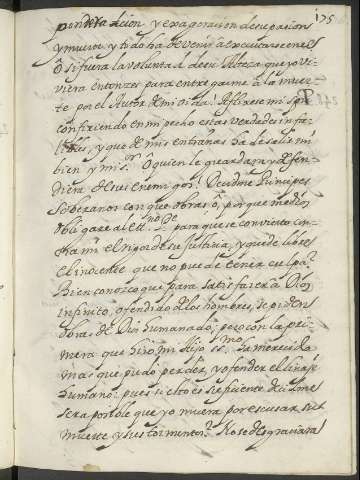 175
ponderacion, y exageracion de su pasion
y muerte, y todo ha de venir à executarse en el
ô si fuera la voluntad de su Alteza que yo vi-
viera entonces para entregarme à la muer-
te por el Autor de mi vida. Aflixese mi Spu
confiriendo en mi pecho estas verdades infa-
libles, y que de mis entrañas ha de salir mi
bien y mi sr. O quien le guardara y defen-
diera de sus enemigos! Decidme Principes
Soberanos con que obras, ô, por que medios
obligare al para que se convierta con-
tra mi el rigor de su Justicia, y quede libre
el innocente que no puede tener culpa?
Bien conozco que para satisfacer à Dios
infinito, ofendido de los hombres, se piden
obras de Dios humanado; pero con la pri-
mera que hizo mi hijo ssmo. ha merecido
mas que pudo perder, y ofender el linaje
humano: pues si esto es suficiente decidme
sera posible que yo muera por escusar su
muerte y sus tormentos? No se desgraciara